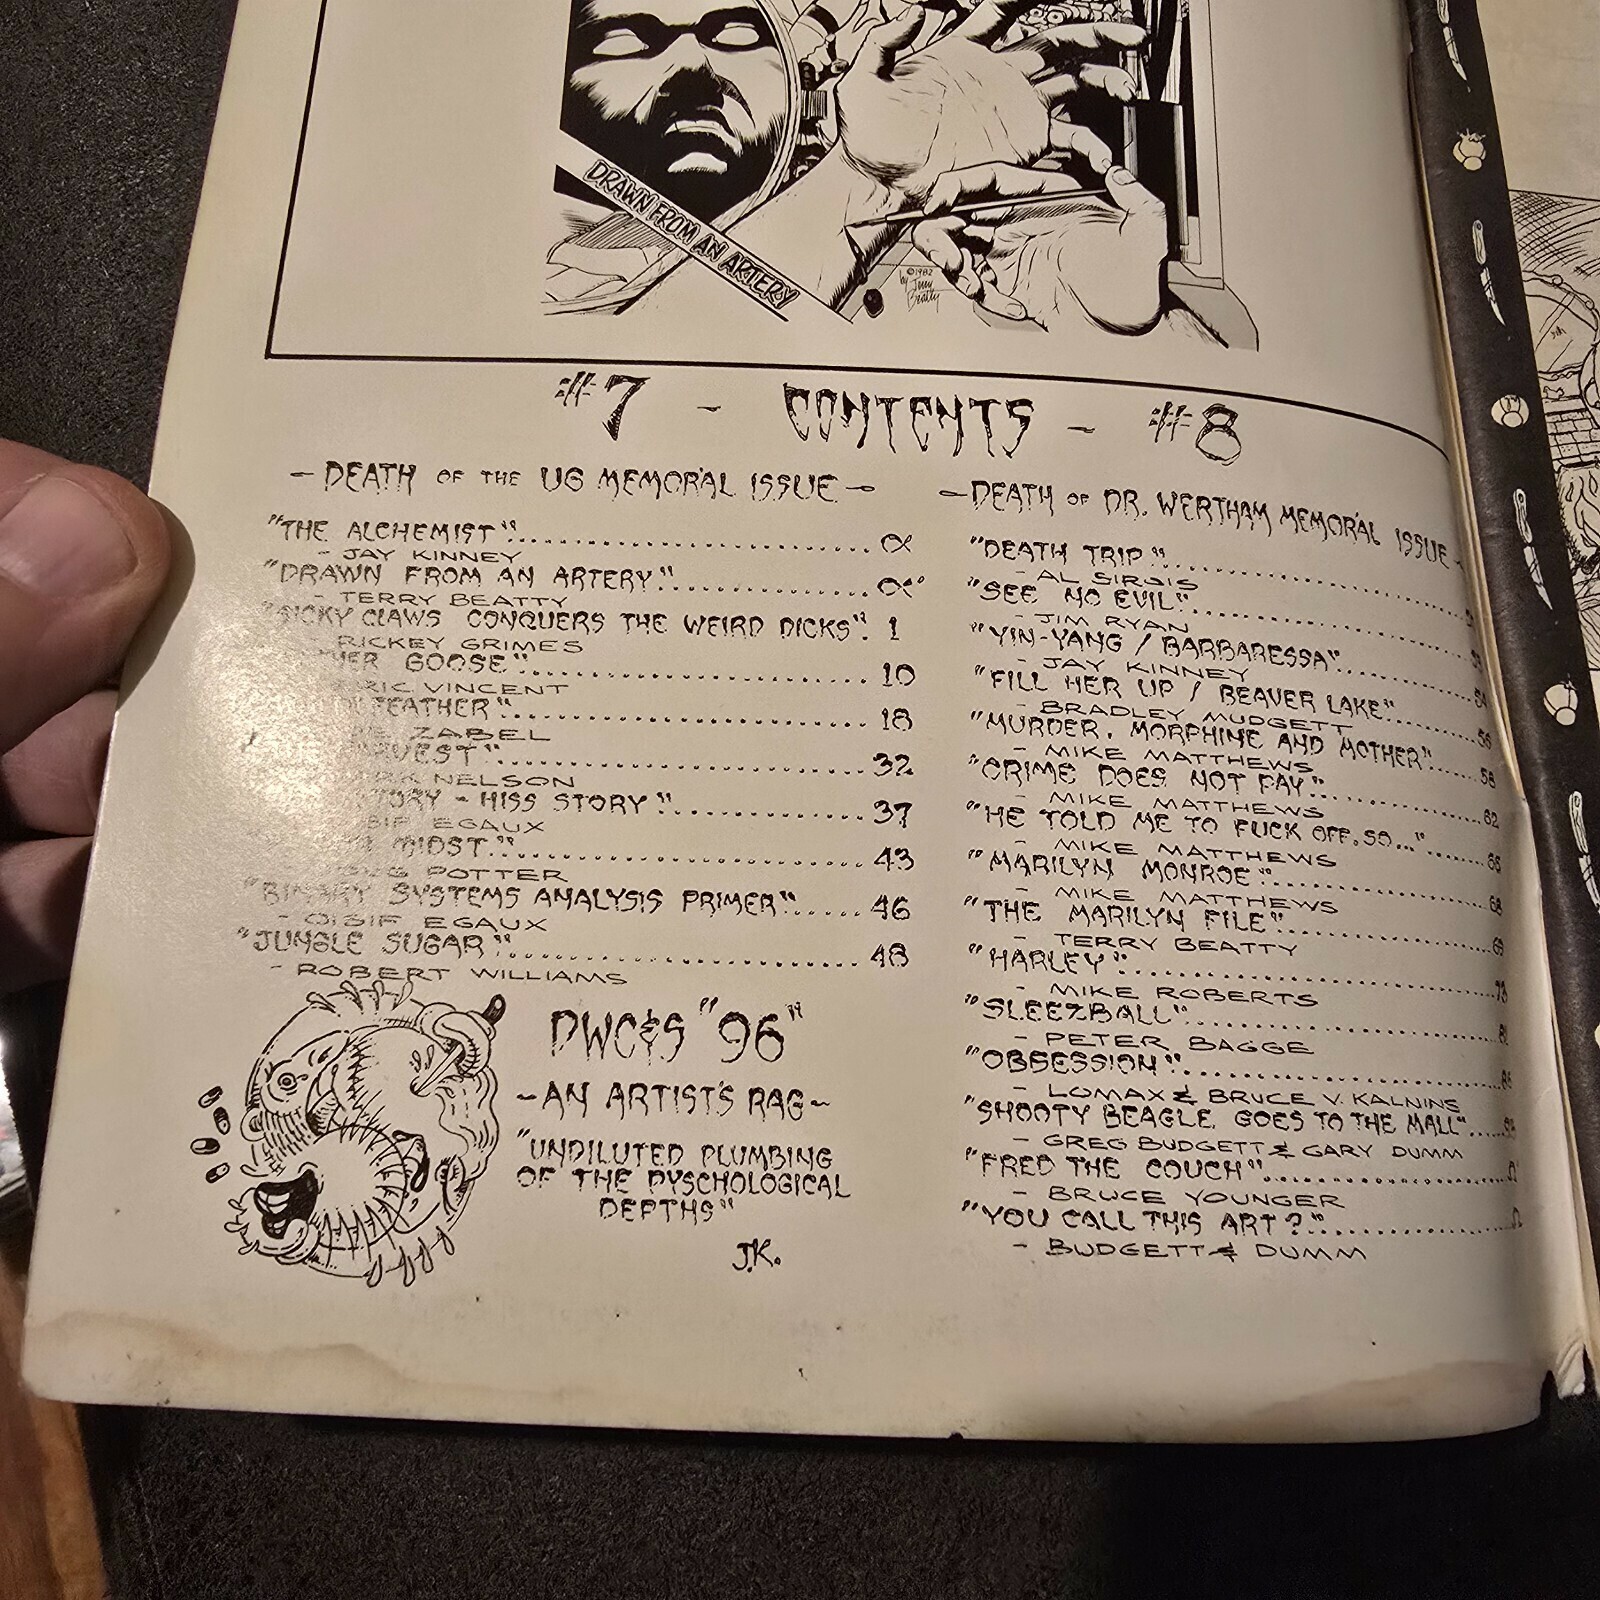 DRAWN FROM AN ARTERY
©1982
by Terry
Beatty
#7 - CONTENTS - #8
- DEATH OF THE UG MEMOR'AL ISSUE -
"THE ALCHEMIST" α
- JAY KINNEY
"DRAWN FROM AN ARTERY"
- TERRY BEATTY
CLAWS CONQUERS THE WEIRD DICKS". 1
RICKEY GRIMES
GOOSE" 10
VINCENT
18
ZABEL
32
NELSON
- HISS STORY" 37
EGAUX
MIDST" 43
POTTER
"BINARY SYSTEMS ANALYSIS PRIMER" 46
- OISIF EGAUX
"JUNGLE SUGAR" 48
- ROBERT WILLIAMS
DWC&S "96"
- AN ARTIST'S RAG -
"UNDILUTED PLUMBING
OF THE PYSCHOLOGICAL
DEPTHS"
J.K.
- DEATH OF DR. WERTHAM MEMOR'AL ISSUE -
"DEATH TRIP"
- AL SIROIS
"SEE NO EVIL"
- JIM RYAN
"YIN-YANG / BARBARESSA"
- JAY KINNEY
"FILL HER UP / BEAVER LAKE" 54
- BRADLEY MUDGETT
"MURDER, MORPHINE AND MOTHER" 56
- MIKE MATTHEWS
"CRIME DOES NOT PAY" 58
- MIKE MATTHEWS
"HE TOLD ME TO FUCK OFF, SO..." 62
- MIKE MATTHEWS
"MARILYN MONROE" 65
- MIKE MATTHEWS
"THE MARILYN FILE" 68
- TERRY BEATTY
"HARLEY" 69
- MIKE ROBERTS
"SLEEZBALL" 73
- PETER BAGGE
"OBSESSION"
- LOMAX & BRUCE V. KALNINS
"SHOOTY BEAGLE GOES TO THE MALL"
- GREG BUDGETT & GARY DUMM
"FRED THE COUCH"
- BRUCE YOUNGER
"YOU CALL THIS ART?" Ω
- BUDGETT & DUMM